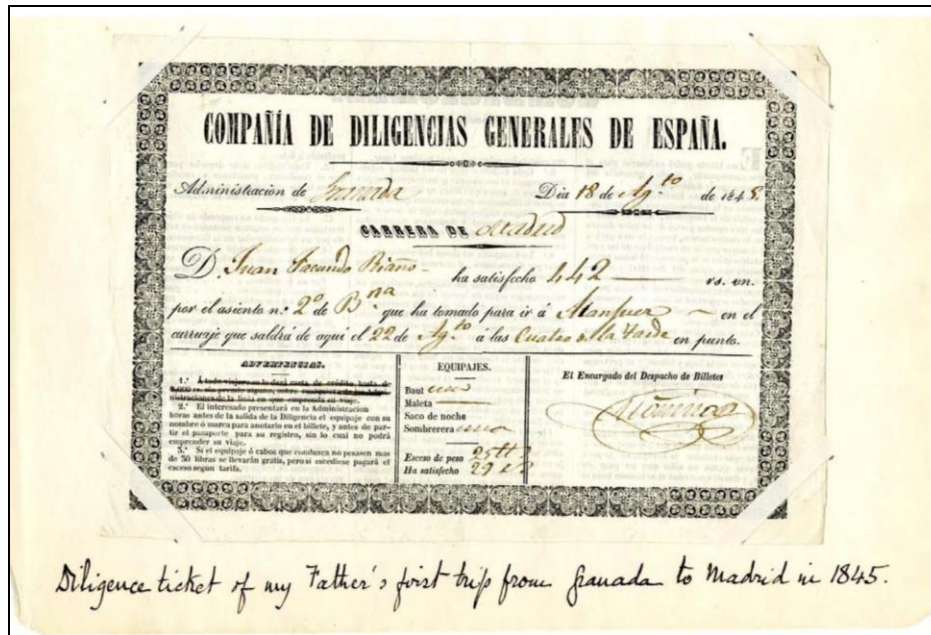 COMPAÑÍA DE DILIGENCIAS GENERALES DE ESPAÑA.
Administracion de Granada Dia 18 de Ag.to de 1845.
CARRERA DE Madrid
D. Juan Facundo Riaño ha satisfecho 442 rs. vn.
por el asiento n.º 2º de B.na que ha tomado para ir á Aranjuez en el
carruaje que saldrá de aqui el 22 de Ag.to á las Cuatro de la tarde en punto.
ADVERTENCIAS.
1.ª Á todo viajero se le dará carta de crédito, hasta de
nistraciones de la línia en que emprenda su viaje.
2.ª El interesado presentará en la Administracion
horas antes de la salida de la Diligencia el equipaje con su
nombre ó marca para anotarlo en el billete, y antes de par-
tir el pasaporte para su registro, sin lo cual no podrá
emprender su viaje.
3.ª Si el equipaje ó cabos que conduzca no pesasen mas
de 50 libras se llevarán gratis, pero si escediese pagará el
esceso segun tarifa.
EQUIPAJES.
Baul uno
Maleta
Saco de noche
Sombrerera una
Esceso de peso 25 tt
Ha satisfecho 29
El Encargado del Despacho de Billetes
Diligence ticket of my Father's first trip from Granada to Madrid in 1845.